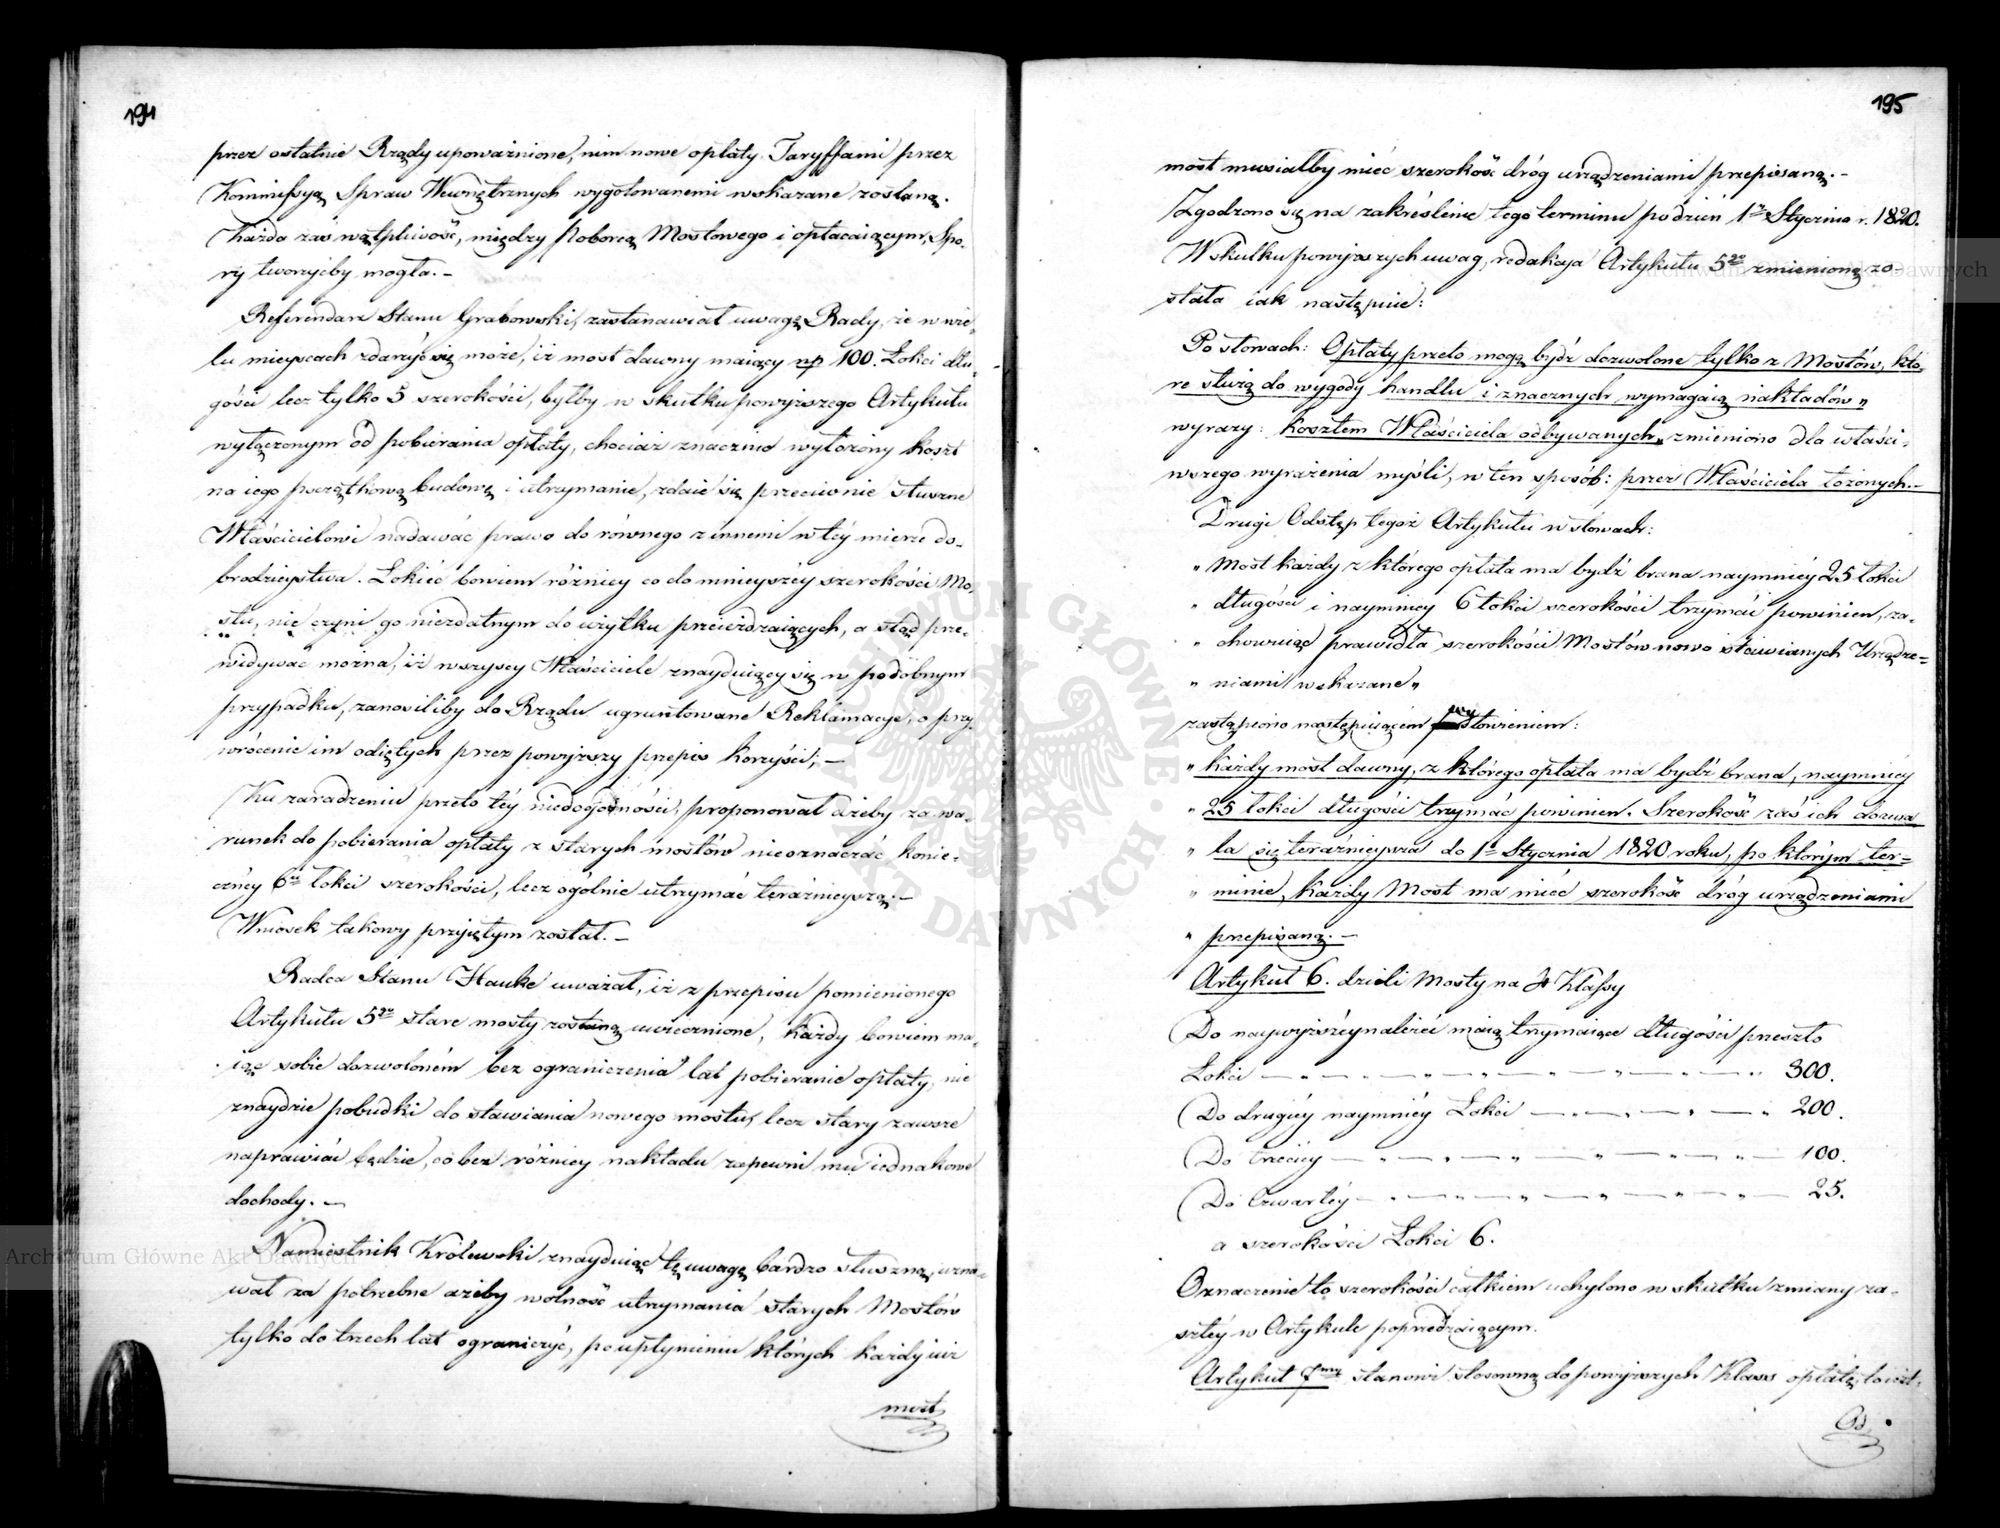 194
przez ostatnie Rządy upoważnione, nim nowe opłaty Taryffami przez
Kommissyą Spraw Wewnętrznych wygotowanemi wskazane zostaną.
Każda zaś wątpliwość, między Poborcą Mostowego i opłacaiącym, Spo-
ry tworzyćby mogła. —
Referendarz Stanu Grabowski, zastanawiał uwagę Rady, że w wie-
lu mieyscach zdarzyć się może, iż most dawny maiący np 100. Łokci dłu-
gości lecz tylko 5 szerokości, byłby w skutku powyższego Artykułu
wyłączonym od pobierania opłaty, chociaż znacznie wyłożony koszt
na iego początkową budowę i utrzymanie, zdaie się przeciwnie słuszne
Właścicielowi nadawać prawo do równego z innemi w téy mierze do-
brodzieystwa. Łokieć bowiem różnicy co do mnieyszéy szerokości Mo-
stu, nie czyni go niezdatnym do użytku przeieżdzaiących, a stąd prze-
widywać można, iż wszyscy Właściciele znayduiący się w podobnym
przypadku, zanosiliby do Rządu ugruntowane Reklamacye, o przy-
wrócenie im odiętych przez powyższy przepis korzyści; —
Ku zaradzeniu przeto téy niedogodności, proponował ażeby za wa-
runek do pobierania opłaty z starych mostów nieoznaczać konie-
cznéy 6ciu łokci szerokości, lecz ogólnie utrzymać teraźnieyszą. —
Wniosek takowy przyiętym został. —
Radca Stanu Hauke uważał, iż z przepisu pomienionego
Artykułu 5go stare mosty zostaną uwiecznione, każdy bowiem ma-
iąc sobie dozwoloném bez ograniczenia lat pobieranie opłaty, nie
znaydzie pobudki do stawiania nowego mostu, lecz stary zawsze
naprawiać będzie, co bez różnicy nakładu zapewni mu iednakowe
dochody. —
Namiestnik Królewski znayduiąc tę uwagę bardzo słuszną, uzna-
wał za potrzebne ażeby wolność utrzymania starych Mostów
tylko do trzech lat ograniczyć, po upłynieniu których każdy iuż
most
195
most musiałby mieć szerokość dróg urządzeniami przepisaną. —
Zgodzono się na zakréslenie tego terminu po dzień 1go Stycznia r. 1820.
W skutku powyższych uwag, redakcya Artykułu 5go zmienioną zo-
stała iak następuie:
Po słowach: Opłaty przeto mogą bydź dozwolone tylko z Mostów, któ-
re służą do wygody handlu i znacznych wymagaią nakładów „
wyrazy: kosztem Właściciela odbywanych„ zmieniono dla właści-
wszego wyrażenia myśli, w ten sposób: przez Właściciela łożonych. —
Drugi Odstęp tegoż Artykułu w słowach:
„ Most każdy z którego opłata ma bydź brana naymniéy 25 łokci
„ długości i naymniéy 6 łokci szerokości trzymać powinien, za-
„ chowuiąc prawidła szerokości Mostów nowo stawianych Urządze-
„ niami wskazane„
zastąpiono następuiącém przysłowieniem:
„ każdy most dawny, z którego opłata ma bydź brana, naymniéy
„ 25 łokci długości trzymać powinien. Szerokość zaś ich dozwa
„ la się teraźnieysza do 1go Stycznia 1820 roku, po którym ter-
„ minie, każdy Most ma mieć szerokość dróg urządzeniami
„ przepisaną. —
Artykuł 6. dzieli Mosty na 4 Klassy
Do naywyższéy należeć maią trzymaiące długości przeszło
Łokci — „ — „ — „ — „ — „ — 300.
Do drugiéy naymniéy Łokci — „ — „ — „ — „ 200.
Do trzeciéy — „ — „ — „ — „ — „ — 100.
Do Czwartéy — „ — „ — „ — „ — „ — 25.
a szerokości Łokci 6.
Oznaczenie to szerokości całkiem uchylono w skutku zmiany za-
szłéy w Artykule poprzedzaiącym.
Artykuł 7my stanowi stosowną do powyższych Klass opłatę, to iest.
Od
Archiwum Główne Akt Dawnych
Archiwum Główne Akt Dawnych
ARCHIWUM GŁÓWNE AKT DAWNYCH